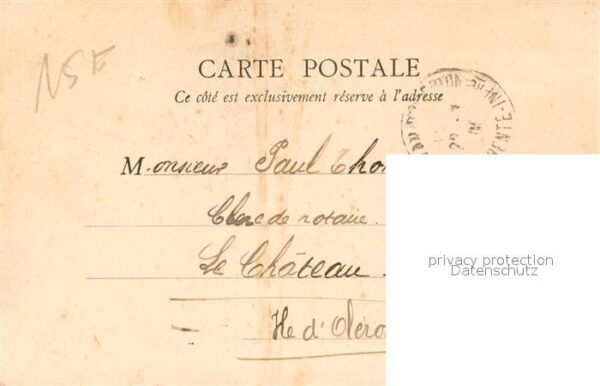 15 F
CARTE POSTALE
Ce côté est exclusivement réservé à l'adresse
Monsieur Paul Tho
Clerc de notaire
Le Château
Ile d'Olero
privacy protection
Datenschutz